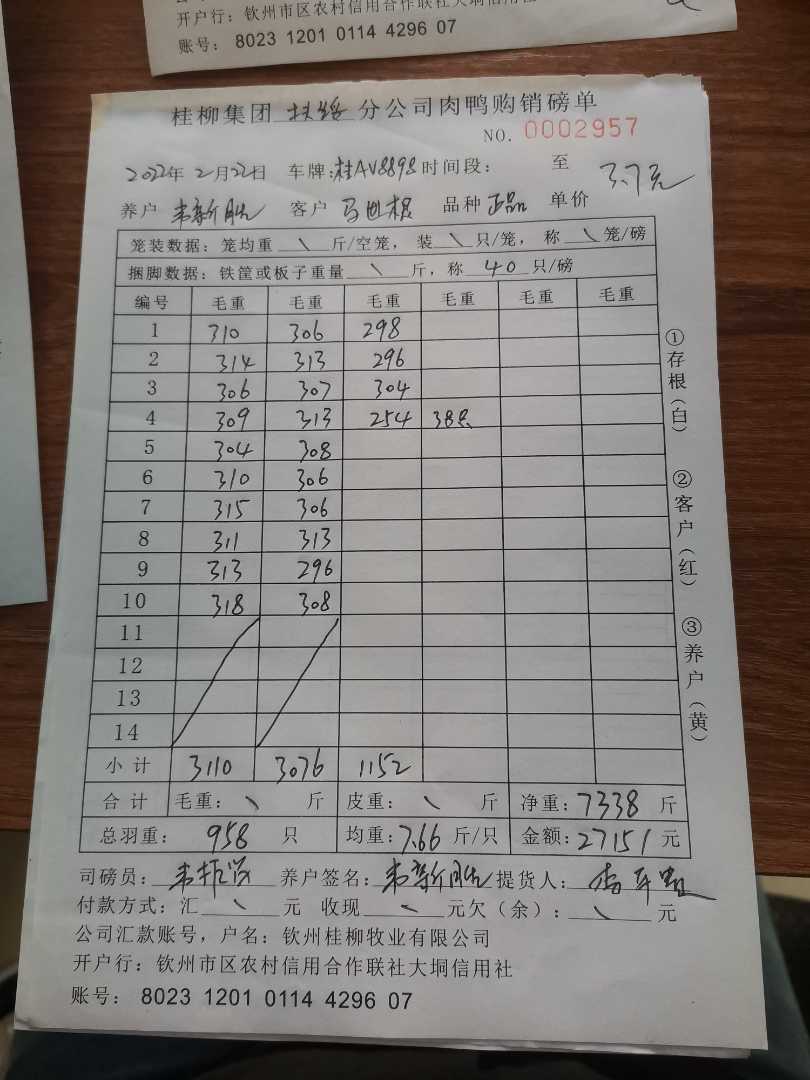 开户行：钦州市区农村信用合作联社大垌信用社
账号：8023 1201 0114 4296 07
桂柳集团 扶绥 分公司肉鸭购销磅单
NO. 0002957
2022年2月22日 车牌：桂AV8898 时间段： 至
养户 韦新胜 客户 马世根 品种 正品 单价 3.7元
笼装数据：笼均重 \ 斤/空笼，装 \ 只/笼，称 \ 笼/磅
捆脚数据：铁筐或板子重量 \ 斤，称 40 只/磅
编号 毛重 毛重 毛重 毛重 毛重 毛重
1 310 306 298
2 314 313 296
3 306 307 304
4 309 313 254 38只
5 304 308
6 310 306
7 315 306
8 311 313
9 313 296
10 318 308
11
12
13
14
小计 3110 3076 1152
合计 毛重： \ 斤 皮重： \ 斤 净重：7338 斤
总羽重： 958 只 均重：7.66 斤/只 金额：27151 元
司磅员： 养户签名：韦新胜 提货人：
付款方式：汇 \ 元 收现 \ 元欠（余）： \ 元
公司汇款账号，户名：钦州桂柳牧业有限公司
开户行：钦州市区农村信用合作联社大垌信用社
账号： 8023 1201 0114 4296 07
①存根（白）
②客户（红）
③养户（黄）